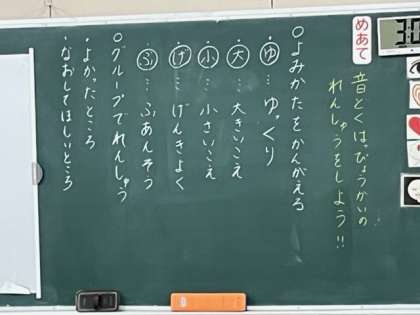 めあて
音どくはっぴょうかいの
れんしゅうをしよう!!
○よみかたをかんがえる
・ゆ…ゆっくり
・大…大きいこえ
・小…小さいこえ
・げ…げんきよく
・ふ…ふあんそう
○グループでれんしゅう
・よかったところ
・なおしてほしいところ